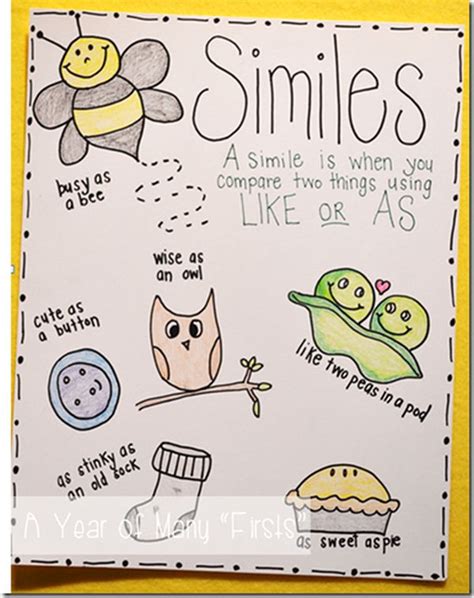 Similes
A simile is when you
compare two things using
LIKE OR AS
busy as
a bee
wise as
an owl
cute as
a button
like two peas in a pod
as stinky as
an old sock
as sweet as pie
A Year of Many "Firsts"